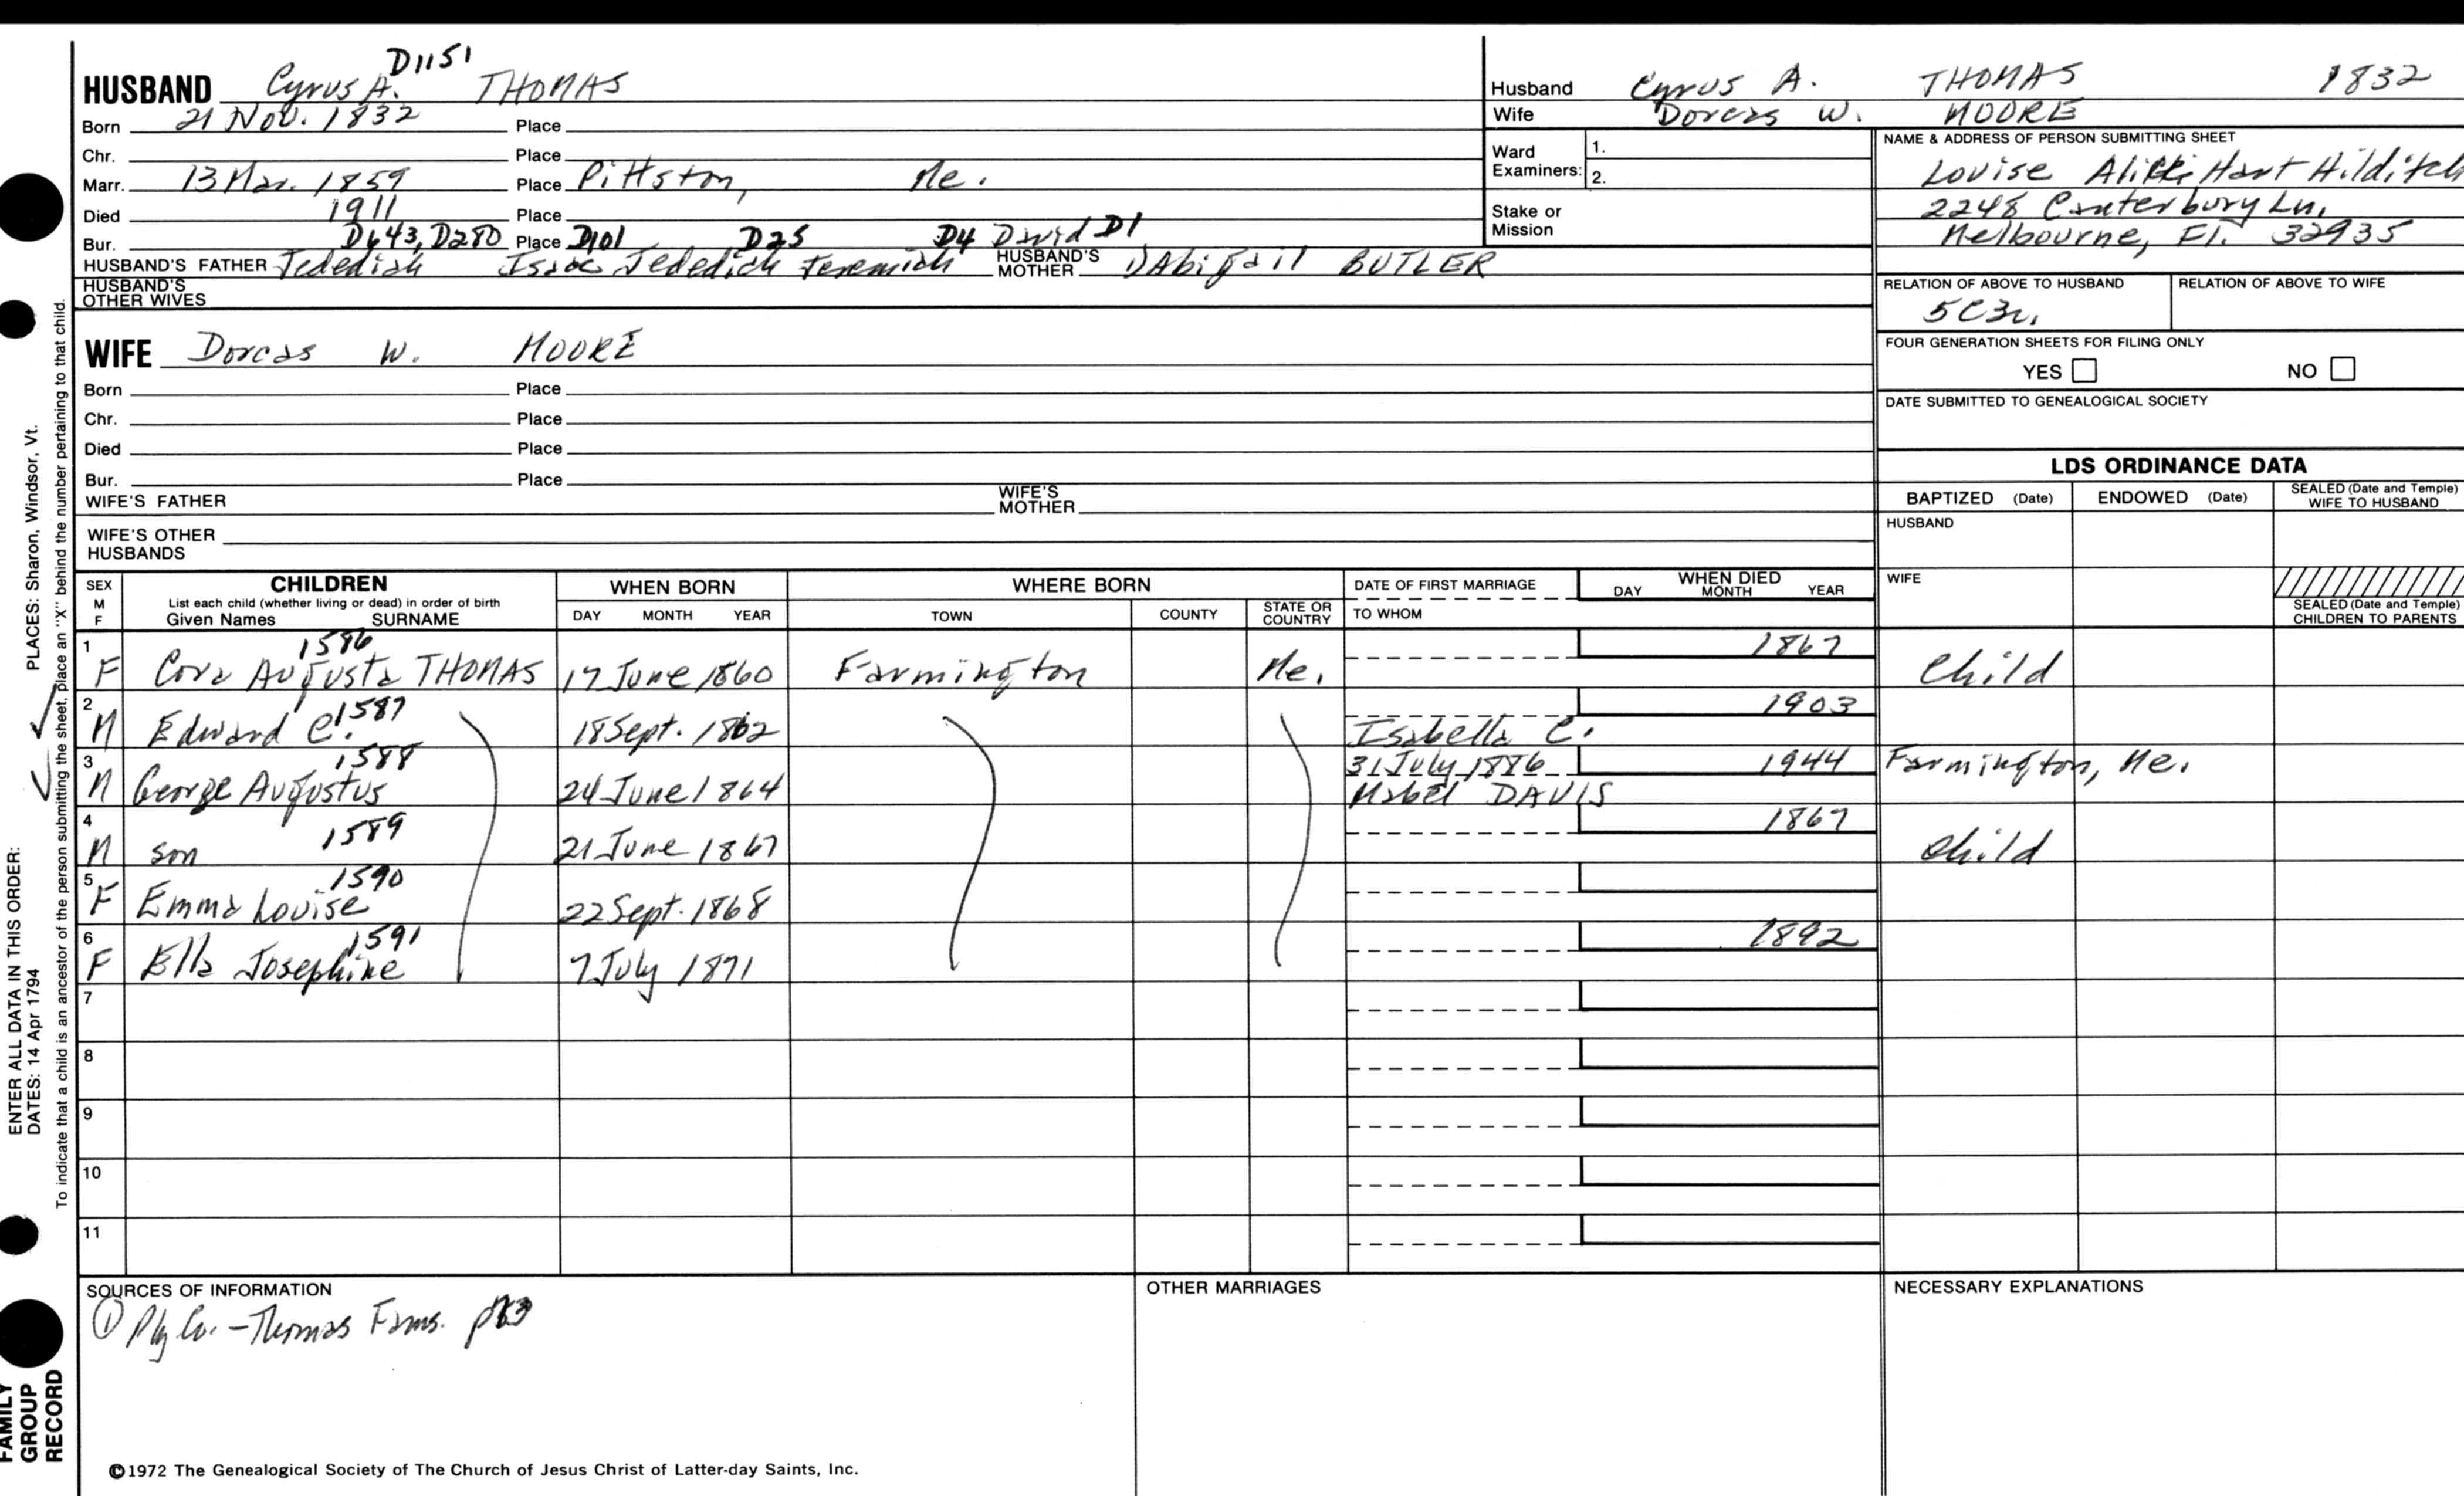 D1151
HUSBAND Cyrus A. THOMAS
Born 21 Nov. 1832 Place
Chr. Place
Marr. 13 Mar. 1859 Place Pittston, Me.
Died 1911 Place
Bur. D643, D280 Place D101 D25 D4 David D1
HUSBAND'S FATHER Jedediah Isaac Jededich Jeremiah HUSBAND'S MOTHER Abigail BUTLER
HUSBAND'S OTHER WIVES
WIFE Dorcas W. MOORE
Born Place
Chr. Place
Died Place
Bur. Place
WIFE'S FATHER WIFE'S MOTHER
WIFE'S OTHER HUSBANDS
Husband Cyrus A. THOMAS 1832
Wife Dorcas W. MOORE
Ward Examiners: 1.
2.
Stake or Mission
NAME & ADDRESS OF PERSON SUBMITTING SHEET
Louise Hart Hilditch
2248 Canterbury Ln.
Melbourne, Fl. 32935
RELATION OF ABOVE TO HUSBAND RELATION OF ABOVE TO WIFE
5C3r.
FOUR GENERATION SHEETS FOR FILING ONLY
YES NO
DATE SUBMITTED TO GENEALOGICAL SOCIETY
LDS ORDINANCE DATA
BAPTIZED (Date) ENDOWED (Date) SEALED (Date and Temple) WIFE TO HUSBAND
HUSBAND
WIFE
SEALED (Date and Temple) CHILDREN TO PARENTS
SEX M F CHILDREN WHEN BORN WHERE BORN DATE OF FIRST MARRIAGE WHEN DIED
List each child (whether living or dead) in order of birth
Given Names SURNAME DAY MONTH YEAR TOWN COUNTY STATE OR COUNTRY TO WHOM DAY MONTH YEAR
1 1586 1867
F Cora Augusta THOMAS 17 June 1860 Farmington Me. Child
2 1587 1903
M Edward C. 18 Sept. 1862 Isabella C.
3 1588 31 July 1886 1944 Farmington, Me.
M George Augustus 24 June 1864 Mabel DAVIS
4 1589 1867
M son 21 June 1867 Child
5 1590
F Emma Louise 22 Sept. 1868
6 1591 1892
F Ella Josephine 7 July 1871
7
8
9
10
11
SOURCES OF INFORMATION OTHER MARRIAGES NECESSARY EXPLANATIONS
① Ply Co. - Thomas Fams.
©1972 The Genealogical Society of The Church of Jesus Christ of Latter-day Saints, Inc.
ENTER ALL DATA IN THIS ORDER:
DATES: 14 Apr 1794 PLACES: Sharon, Windsor, Vt.
To indicate that a child is an ancestor of the person submitting the sheet, place an "X" behind the number pertaining to that child.
FAMILY GROUP RECORD